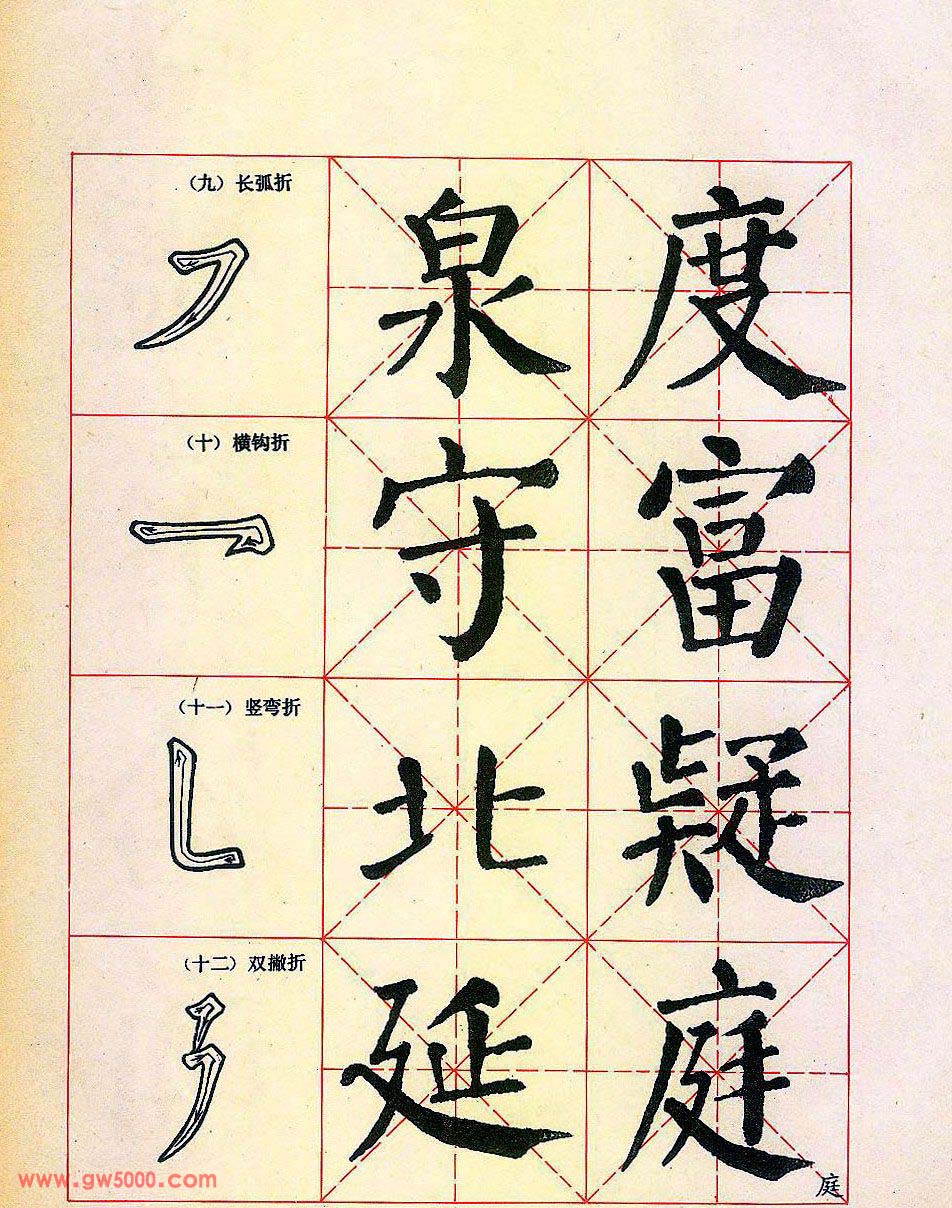 （九）长弧折
泉 度
（十）横钩折
守 富
（十一）竖弯折
北 疑
（十二）双撇折
延 庭
庭
www.gw5000.com